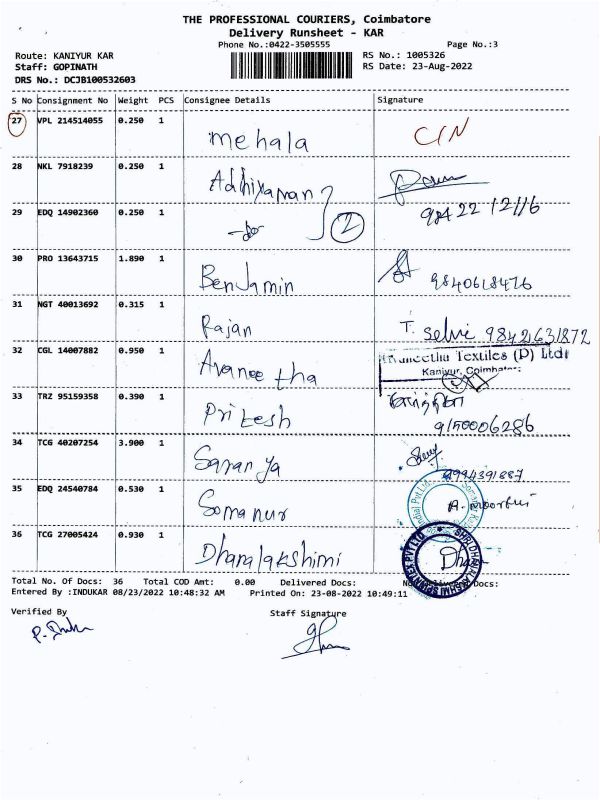 THE PROFESSIONAL COURIERS, Coimbatore
Delivery Runsheet - KAR
Phone No.:0422-3505555 Page No.:3
Route: KANIYUR KAR RS No.: 1005326
Staff: GOPINATH RS Date: 23-Aug-2022
DRS No.: DCJB100532603
S No Consignment No Weight PCS Consignee Details Signature
27 VPL 214514055 0.250 1 Mehala CIN
28 NKL 7918239 0.250 1 Adhiyaman
29 EDQ 14902360 0.250 1 -do- 2 98422 12116
30 PRO 13643715 1.890 1 Benjamin 9840618476
31 NGT 40013692 0.315 1 Rajan T. Selvi 9842631872
32 CGL 14007882 0.950 1 Avaneetha Avaneetha Textiles (P) Ltd
Kaniyur, Coimbatore
33 TRZ 95159358 0.390 1 Pritesh 9150006286
34 TCG 40207254 3.900 1 Saranya 9994391887
35 EDQ 24540784 0.530 1 Somanur A. Moorthi
36 TCG 27005424 0.930 1 Dhanalakshimi Dhan
SHRI DHANALAKSHMI SPINTEX PVT LTD
Total No. Of Docs: 36 Total COD Amt: 0.00 Delivered Docs: Not Delivered Docs:
Entered By :INDUKAR 08/23/2022 10:48:32 AM Printed On: 23-08-2022 10:49:11
Verified By Staff Signature